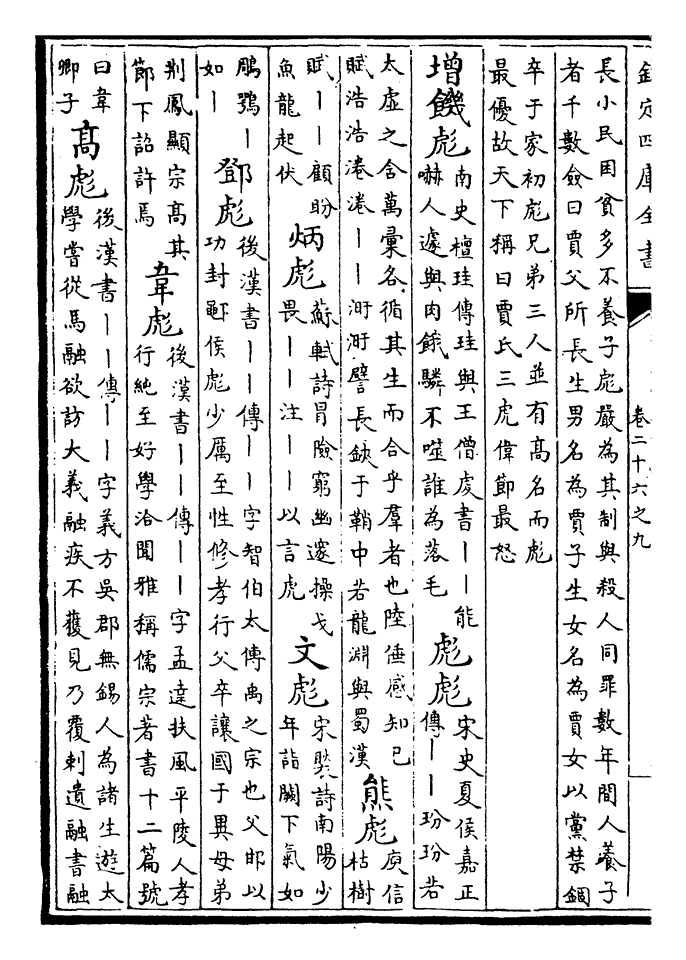 欽定四庫全書 卷二十六之九
長小民困貧多不養子彪嚴為其制與殺人同罪數年間人養子
者千數僉曰賈父所長生男名為賈子生女名為賈女以黨禁錮
卒于家初彪兄弟三人並有髙名而彪
最優故天下稱曰賈氏三虎偉節最怒
增饑彪
南史檀珪傳珪與王僧虔書丨丨能
嚇人遽與肉餓驎不噬誰為落毛
彪彪
宋史夏侯嘉正
傳丨丨玢玢若
太虛之含萬彙各循其生而合乎羣者也陸倕感知己
賦浩浩港港丨丨汧汧譬長鋏于鞘中若龍淵與蜀漢
熊彪
庾信
枯樹
賦丨丨顧盼
魚龍起伏
炳彪
蘇軾詩冒險窮幽邃操戈
畏丨丨注丨丨以言虎
文彪
宋褧詩南陽少
年詣闕下氣如
鵰鶚丨
如丨
鄧彪
後漢書丨丨傳丨丨字智伯太傅禹之宗也父邯以
功封鄳侯彪少厲至性修孝行父卒讓國于異母弟
荆鳳顯宗髙其
節下詔許焉
韋彪
後漢書丨丨傳丨丨字孟達扶風平陵人孝
行純至好學洽聞雅稱儒宗著書十二篇號
曰韋
卿子
髙彪
後漢書丨丨傳丨丨字義方吳郡無錫人為諸生遊太
學嘗從馬融欲訪大義融疾不獲見乃覆刺遺融書融